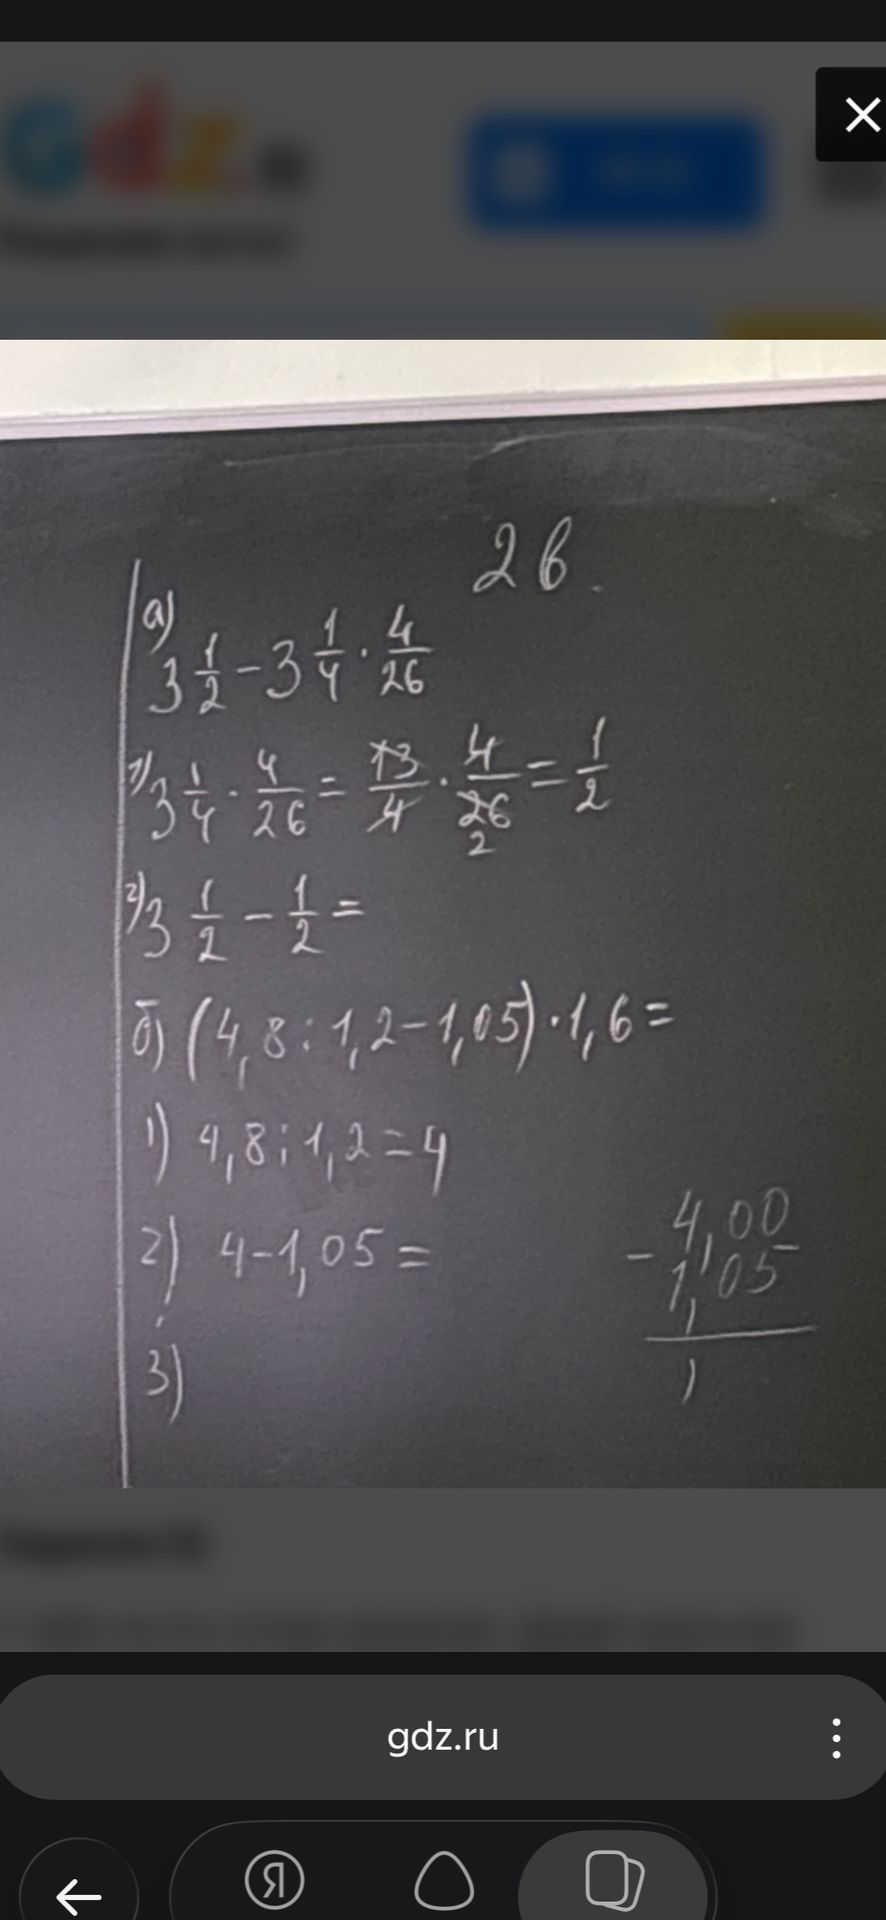 Gdz.
2 в.
а)
3 1/2 - 3 1/4 · 4/26
1) 3 1/4 · 4/26 = 13/4 · 4/26 = 1/2
2
2) 3 1/2 - 1/2 =
б) (4,8 : 1,2 - 1,05) · 1,6 =
1) 4,8 : 1,2 = 4
2) 4 - 1,05 =
- 4,00
1,05
3)
gdz.ru
Я